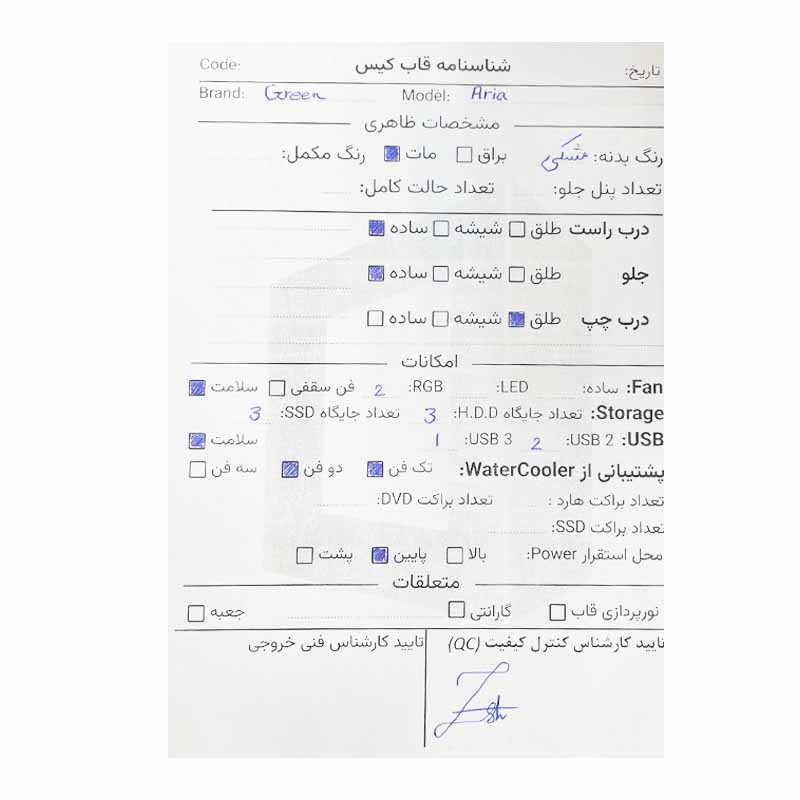 Code: شناسنامه قاب کیس تاریخ:
Brand: Green Model: Aria
مشخصات ظاهری
رنگ بدنه: مشکی براق مات رنگ مکمل:
تعداد پنل جلو: تعداد حالت کامل:
درب راست طلق شیشه ساده
جلو طلق شیشه ساده
درب چپ طلق شیشه ساده
امکانات
Fan: ساده: LED: RGB: 2 فن سقفی سلامت
Storage: تعداد جایگاه H.D.D: 3 تعداد جایگاه SSD: 3
USB: USB 2: 2 USB 3: 1 سلامت
پشتیبانی از WaterCooler: تک فن دو فن سه فن
تعداد براکت هارد : تعداد براکت DVD:
تعداد براکت SSD:
محل استقرار Power: بالا پایین پشت
متعلقات
نورپردازی قاب گارانتی جعبه
تایید کارشناس کنترل کیفیت (QC) تایید کارشناس فنی خروجی